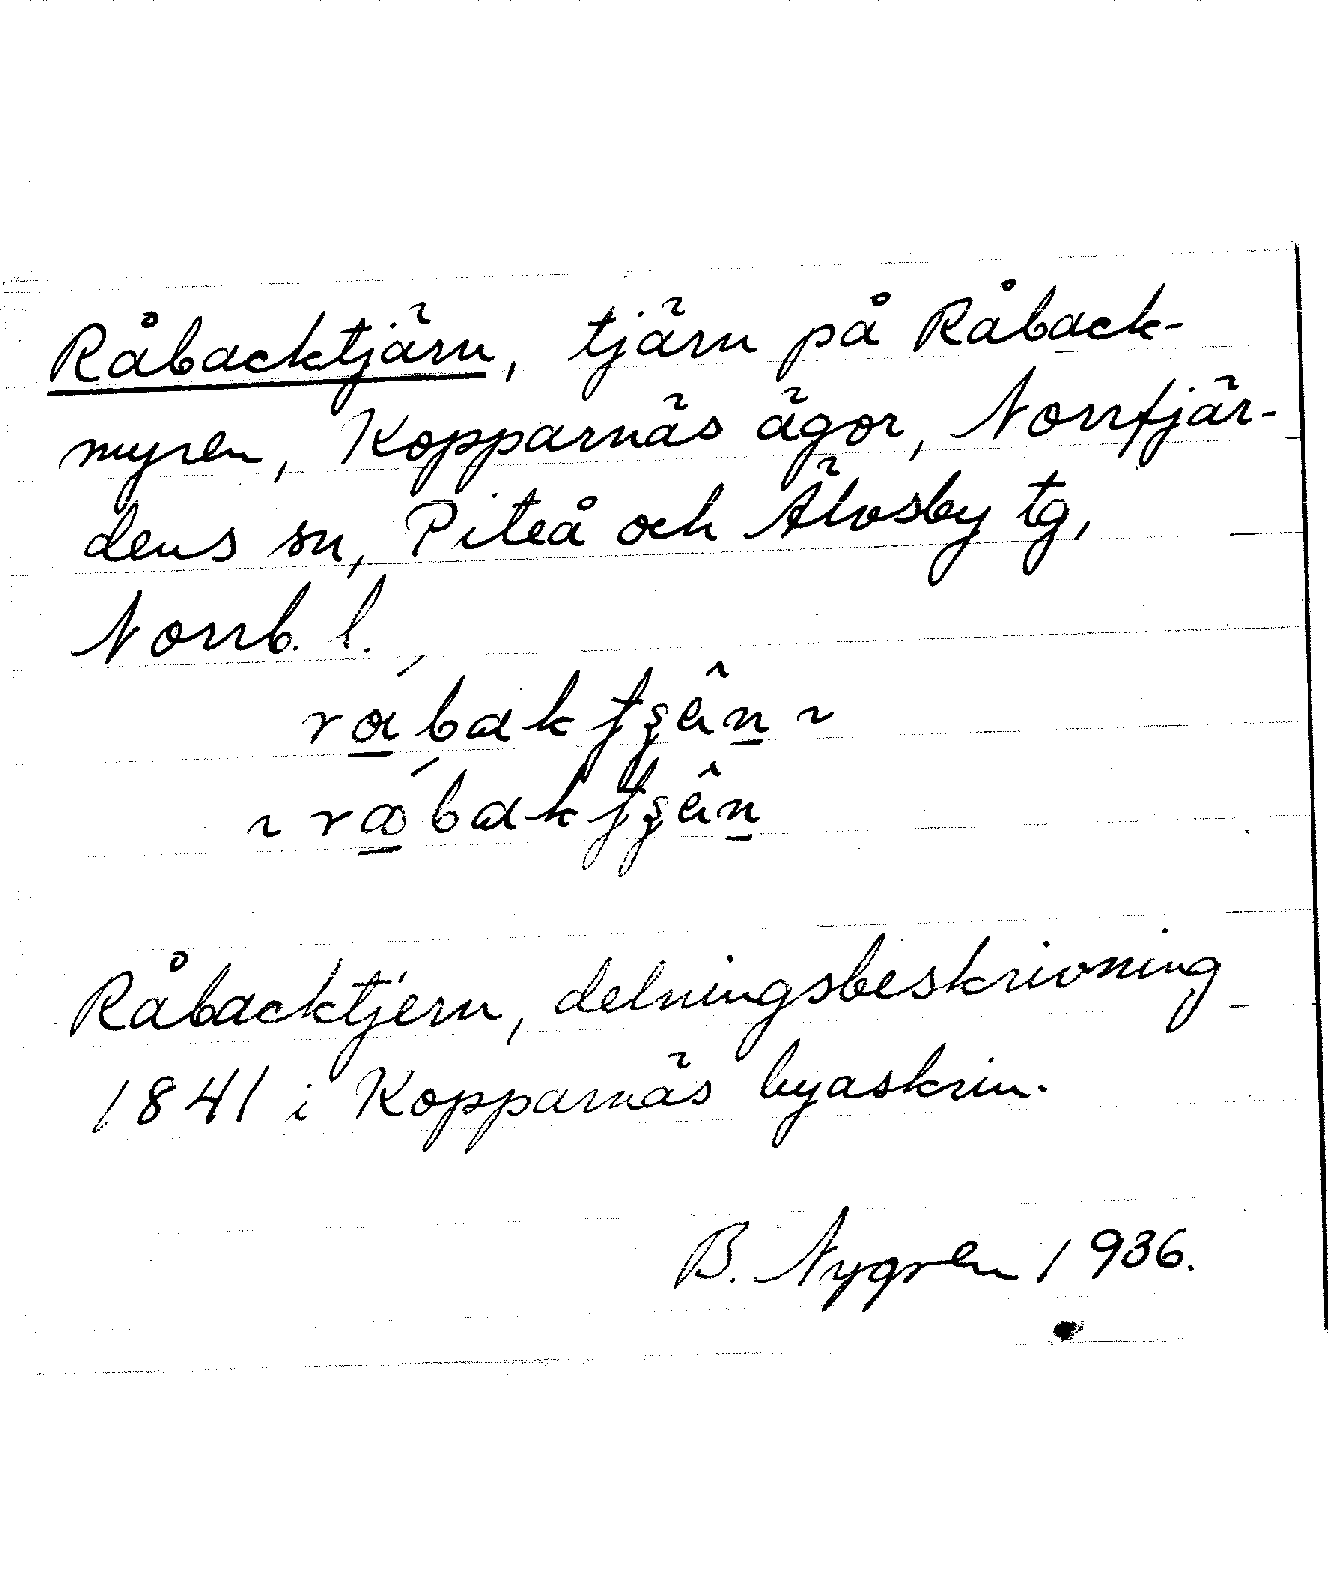 Råbacktjärn, tjärn på Råback-
myren, Kopparnäs ägor, Norrfjär-
dens sn, Piteå och Älvsby tg,
Norrb. l.
~
~
Råbacktjern, delningsbeskrivning
1841 i Kopparnäs byaskrin.
B. Nygren 1936.